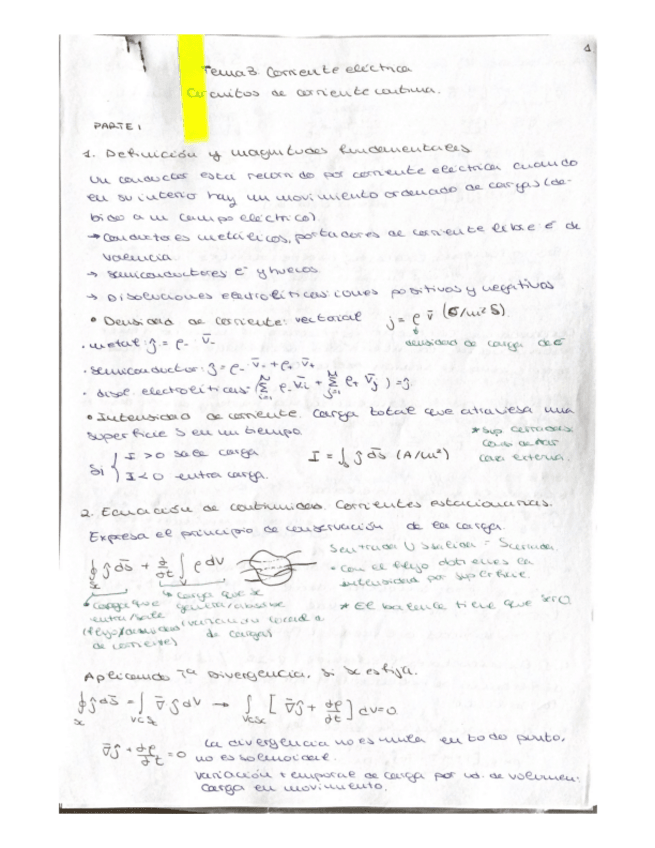 1
Tema 3 Corriente eléctrica
Circuitos de corriente continua.
PARTE 1
1. Definición y magnitudes fundamentales
Un conductor esta recorrido por corriente eléctrica cuando
en su interior hay un movimiento ordenado de cargas (de-
bido a un campo eléctrico)
→ Conductores metálicos, portadores de corriente libre e⁻ de
valencia
→ Semiconductores e⁻ y huecos
→ Disoluciones electrolíticas: iones positivos y negativos
• Densidad de corriente: vectorial j = ρ v̄ (C/m² s)
densidad de carga de
• metal: j = ρ₋ v̄₋
• semiconductor: j = ρ₋ v̄₋ + ρ₊ v̄₊
• disol. electrolíticas: (Σ ρ₋ v̄i + Σ ρ₊ v̄j) = j
• Intensidad de corriente. Carga total que atraviesa una
superficie S en un tiempo
* sup cerradas:
Si { I > 0 sale carga I = ∫s j ds̄ (A/m²)
I < 0 entra carga.
cara externa.
2. Ecuación de continuidad. Corrientes estacionarias.
Expresa el principio de conservación de la carga.
S entrada U S salida = S cerrada
∮ j ds̄ + ∂/∂t ∫v ρ dv
• Con el flujo obtienes la
intensidad por superficie.
• carga que
entra/sale
* carga que se
genera/absorbe
* El balance tiene que ser 0
(flujo/densidad
de corriente)
de cargas)
Aplicando Tª Divergencia, si Sc es fija.
∮ j ds̄ = ∫ ∇̄ j dv → ∫ [ ∇̄ j + dρ/dt ] dv = 0
∇̄ j + dρ/dt = 0 La divergencia no es nula en todo punto,
no es solenoidal.
Variación temporal de carga por ud. de volumen.
Carga en movimiento.